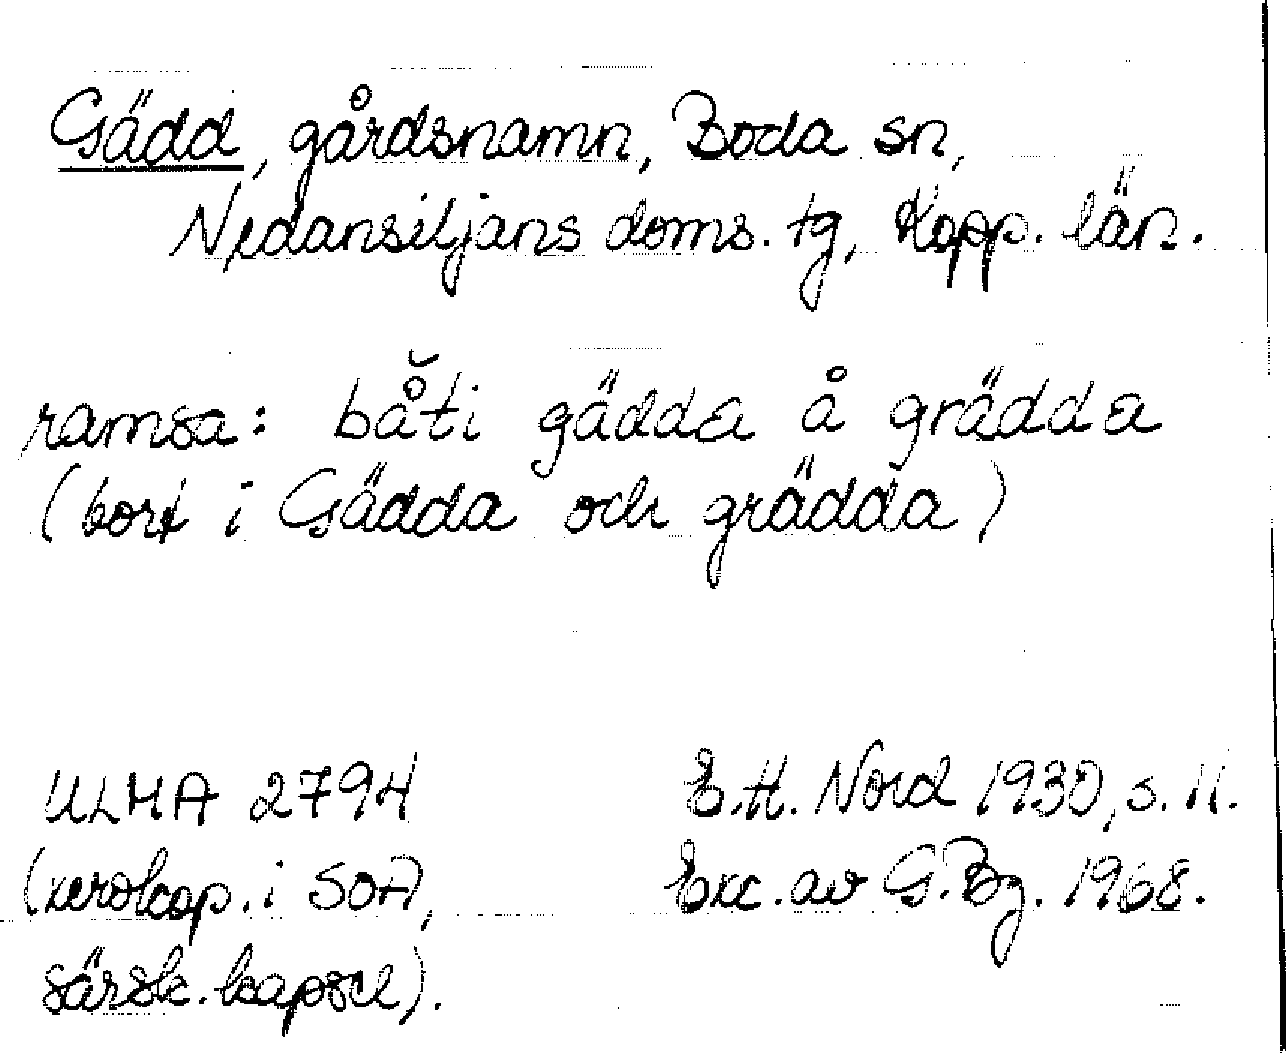 Gädd, gårdsnamn, Boda sn,
Nedansiljans doms. tg, Kopp. län.
ramsa: bå̆ti gädda å grädda
(bort i Gädda och grädda)
ULMA 2794
(xerokop. i SOA,
särsk. kapsel).
E.H. Nord 1930, s. 11.
Exc. av G. Bg. 1968.